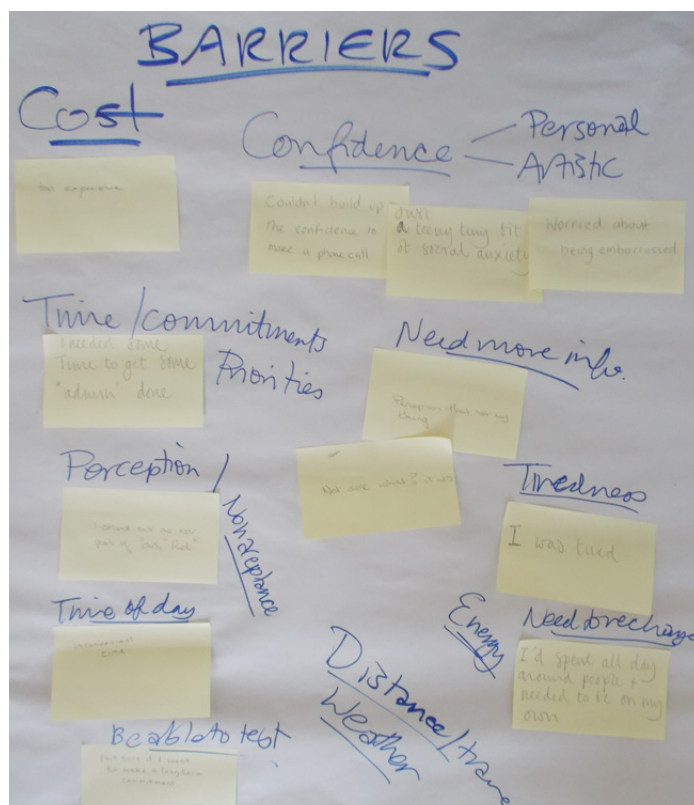 BARRIERS
Cost
too expensive
Confidence
Personal
Artistic
Couldn't build up
the confidence to
make a phone call
Just
a teeny tiny bit
of social anxiety
Worried about
being embarrassed
Time / commitments
Priorities
I needed some
Time to get some
"admin" done
Need more info.
Perception that not my
thing
Not sure what it was
Perception /
Nonacceptance
part of
Tiredness
I was tired
Time of day
Inconvenient
time
Energy
Need to recharge
I'd spent all day
around people +
needed to be on my
own
Distance / trans
Weather
Be able to test
Not sure if I want
to make a long term
commitment